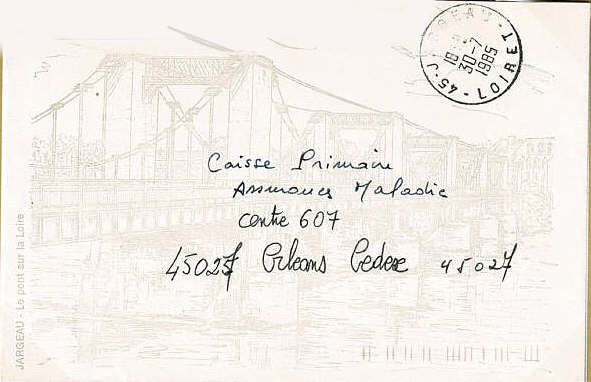 45 - JARGEAU - LOIRET
18 H
30-7
1985
Caisse Primaire
Assurances Maladie
Centre 607
45027 Orleans Cedex 45027
JARGEAU - Le pont sur la Loire